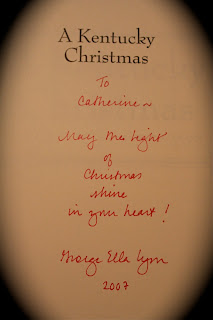 A Kentucky
Christmas
To
Catherine ~
May the light
of
Christmas
shine
in your heart!
George Ella Lyon
2007